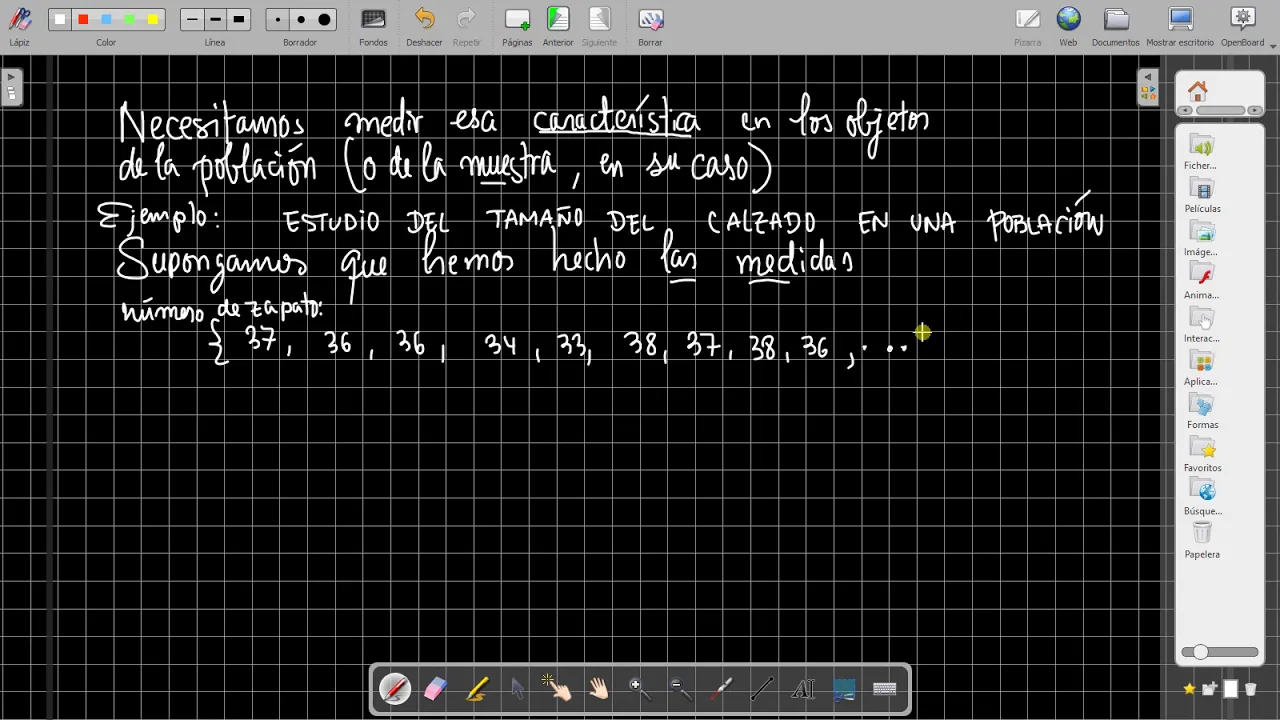 Lápiz Color Línea Borrador Fondos Deshacer Repetir Páginas Anterior Siguiente Borrar Pizarra Web Documentos Mostrar escritorio OpenBoard
Necesitamos medir esa característica en los objetos
de la población (o de la muestra, en su caso)
Ejemplo: ESTUDIO DEL TAMAÑO DEL CALZADO EN UNA POBLACIÓN
Supongamos que hemos hecho las medidas
número de zapato:
{ 37, 36, 36, 34, 33, 38, 37, 38, 36, ...
Ficher...
Películas
Imáge...
Anima...
Interac...
Aplica...
Formas
Favoritos
Búsque...
Papelera
AI